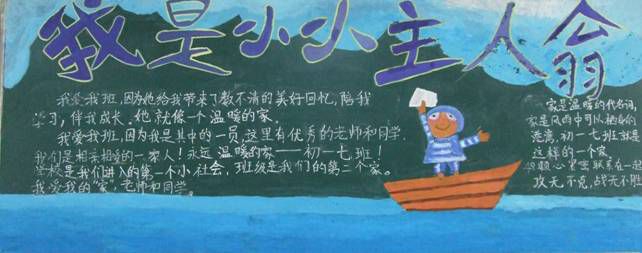 我是小小主人翁
我爱我班,因为她给我带来了数不清的美好回忆,陪我
学习,伴我成长。她就像一个温暖的家。
我爱我班,因为我是其中的一员,这里有优秀的老师和同学.
我们是相亲相爱的一家人!永远温暖的家——初一七班!
学校是我们进入的第一个小社会,班级是我们的第二个家。
我爱我的“家”,老师和同学。
家是温暖的代名词,
家是风雨中可以栖身的
港湾,初一七班就是
这样的一个家.
心里紧联系在一起
攻无不克,战无不胜